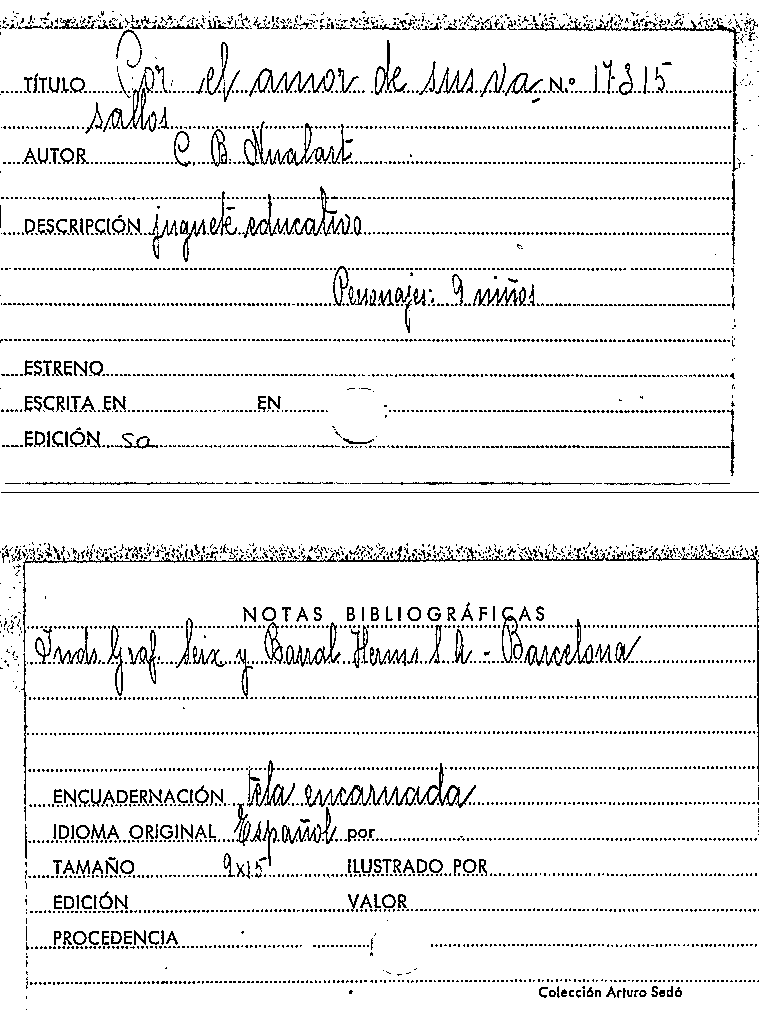 TÍTULO Por el amor de sus va- N.º 17315
sallos
AUTOR C. B. Nualart
DESCRIPCIÓN juguete educativo
Personajes: 9 niños
ESTRENO
ESCRITA EN EN
EDICIÓN sa
NOTAS BIBLIOGRÁFICAS
Inds. Graf. Seix y Barral Herms S A - Barcelona
ENCUADERNACIÓN tela encarnada
IDIOMA ORIGINAL Español por
TAMAÑO 9x15 ILUSTRADO POR
EDICIÓN VALOR
PROCEDENCIA
Colección Arturo Sedó